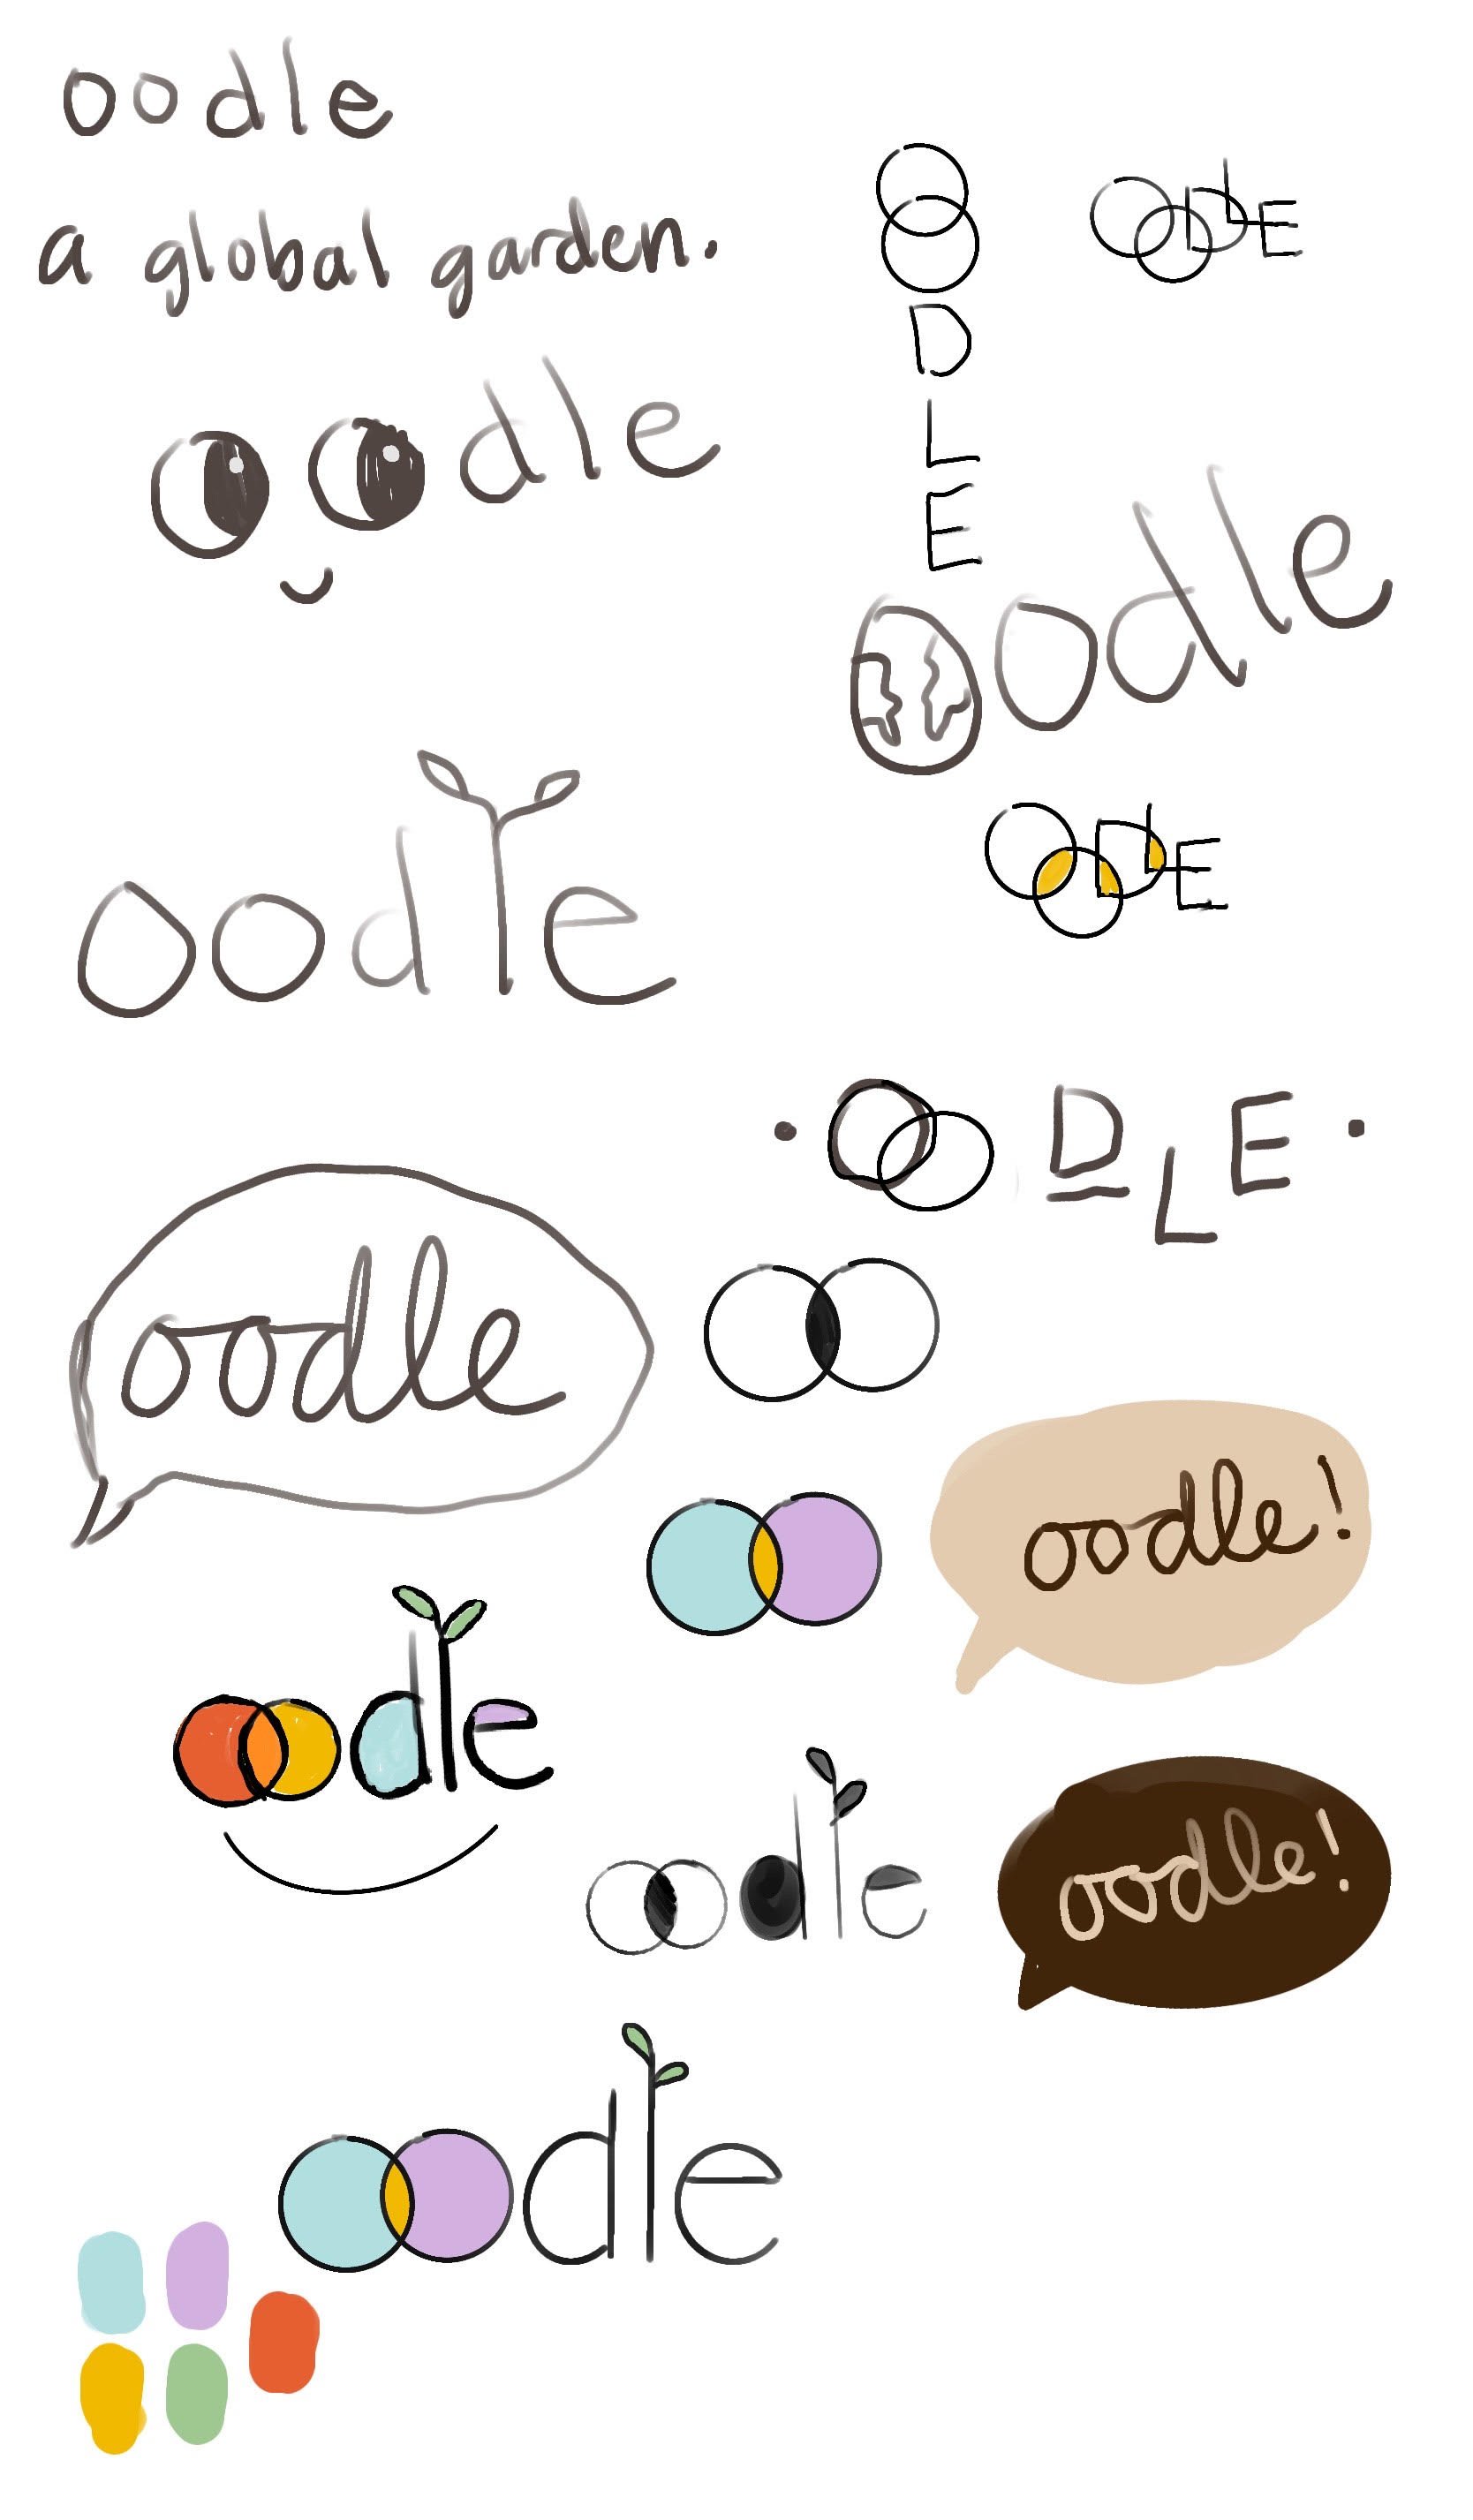 oodle
a global garden.
OODLE
OODLE
oodle
oodle
oodle
OODLE
OODLE
oodle
oodle!
oodle
oodle
oodle!
oodle